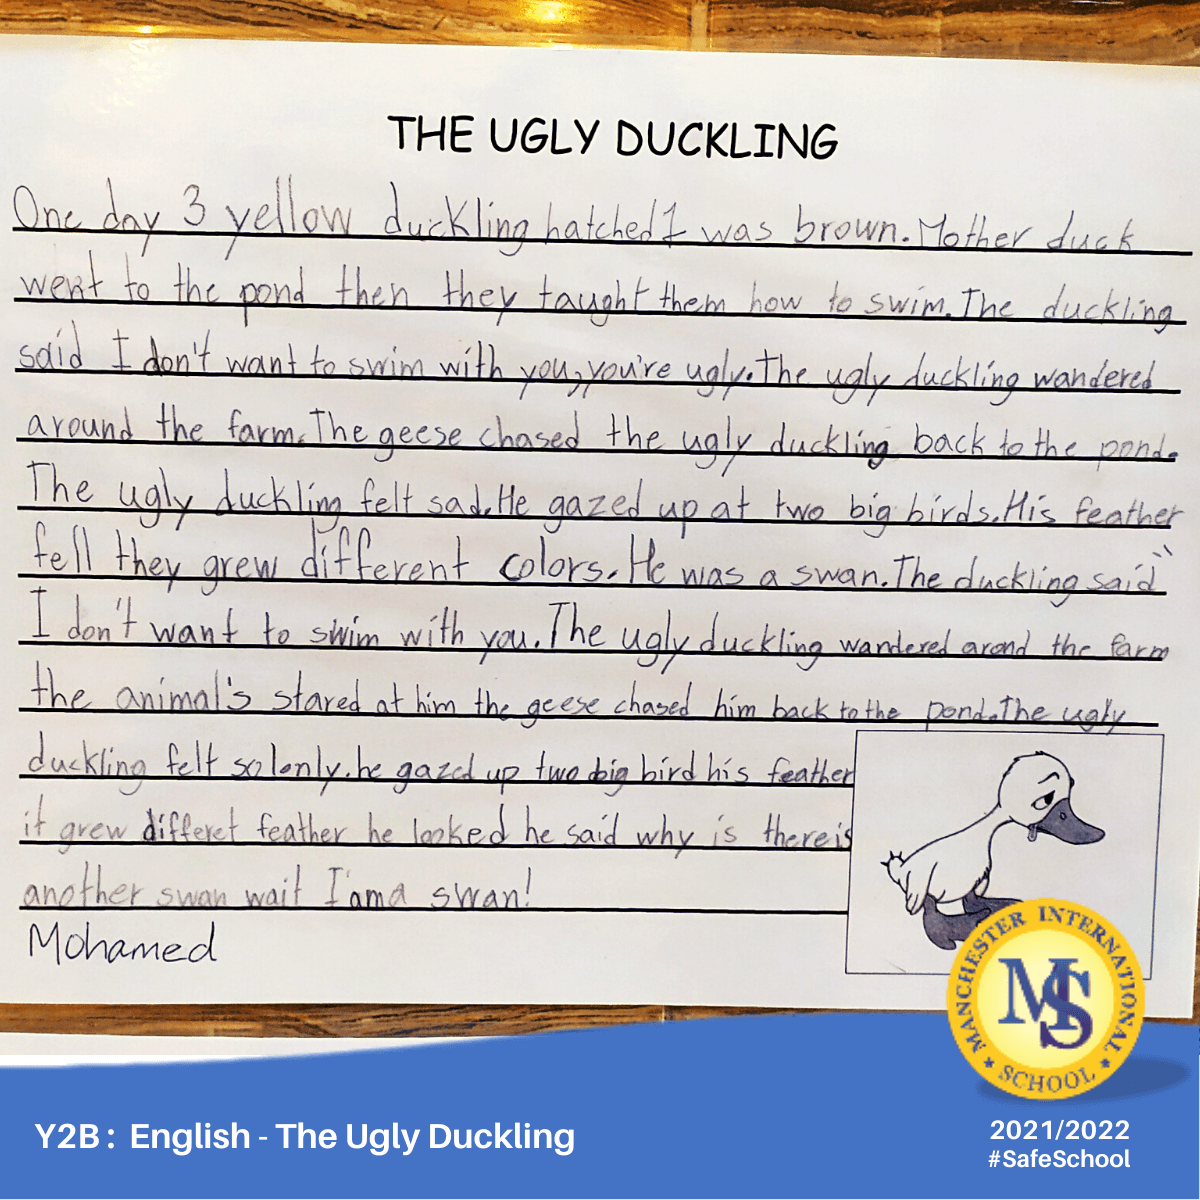 THE UGLY DUCKLING
One day 3 yellow duckling hatched 1 was brown. Mother duck
went to the pond then they taught them how to swim. The duckling
said I don't want to swim with you, you're ugly. The ugly duckling wandered
around the farm. The geese chased the ugly duckling back to the pond.
The ugly duckling felt sad. He gazed up at two big birds. His feather
fell they grew different colors. He was a swan. The duckling said "
I don't want to swim with you. The ugly duckling wandered arond the farm
the animal's stared at him the geese chased him back to the pond. The ugly
duckling felt so lonly. he gazed up two big bird his feather
it grew differet feather he looked he said why is there is
another swan wait I'am a swan!
Mohamed
MANCHESTER INTERNATIONAL
MS
SCHOOL
Y2B : English - The Ugly Duckling
2021/2022
#SafeSchool